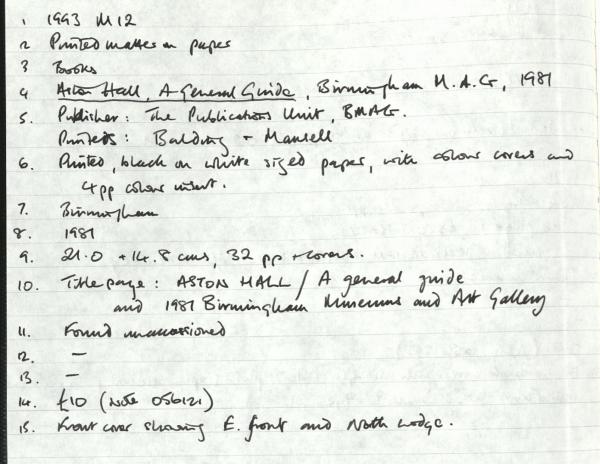 1 1993 M12
2 Printed matter on paper
3 Books
4 Aston Hall, A General Guide, Birmingham M.A.G, 1981
5. Publisher: The Publications Unit, BMAG.
Printers: Balding + Mansell
6. Printed, black on white sized paper, with colour covers and
4pp colour insert.
7. Birmingham
8. 1981
9. 21.0 + 14.8 cms, 32 pp + covers.
10. Title page: ASTON HALL / A general guide
and 1981 Birmingham Museums and Art Gallery
11. Found unaccessioned
12. –
13. –
14. £10 (note 050121)
15. Front cover showing E. front and North Lodge.